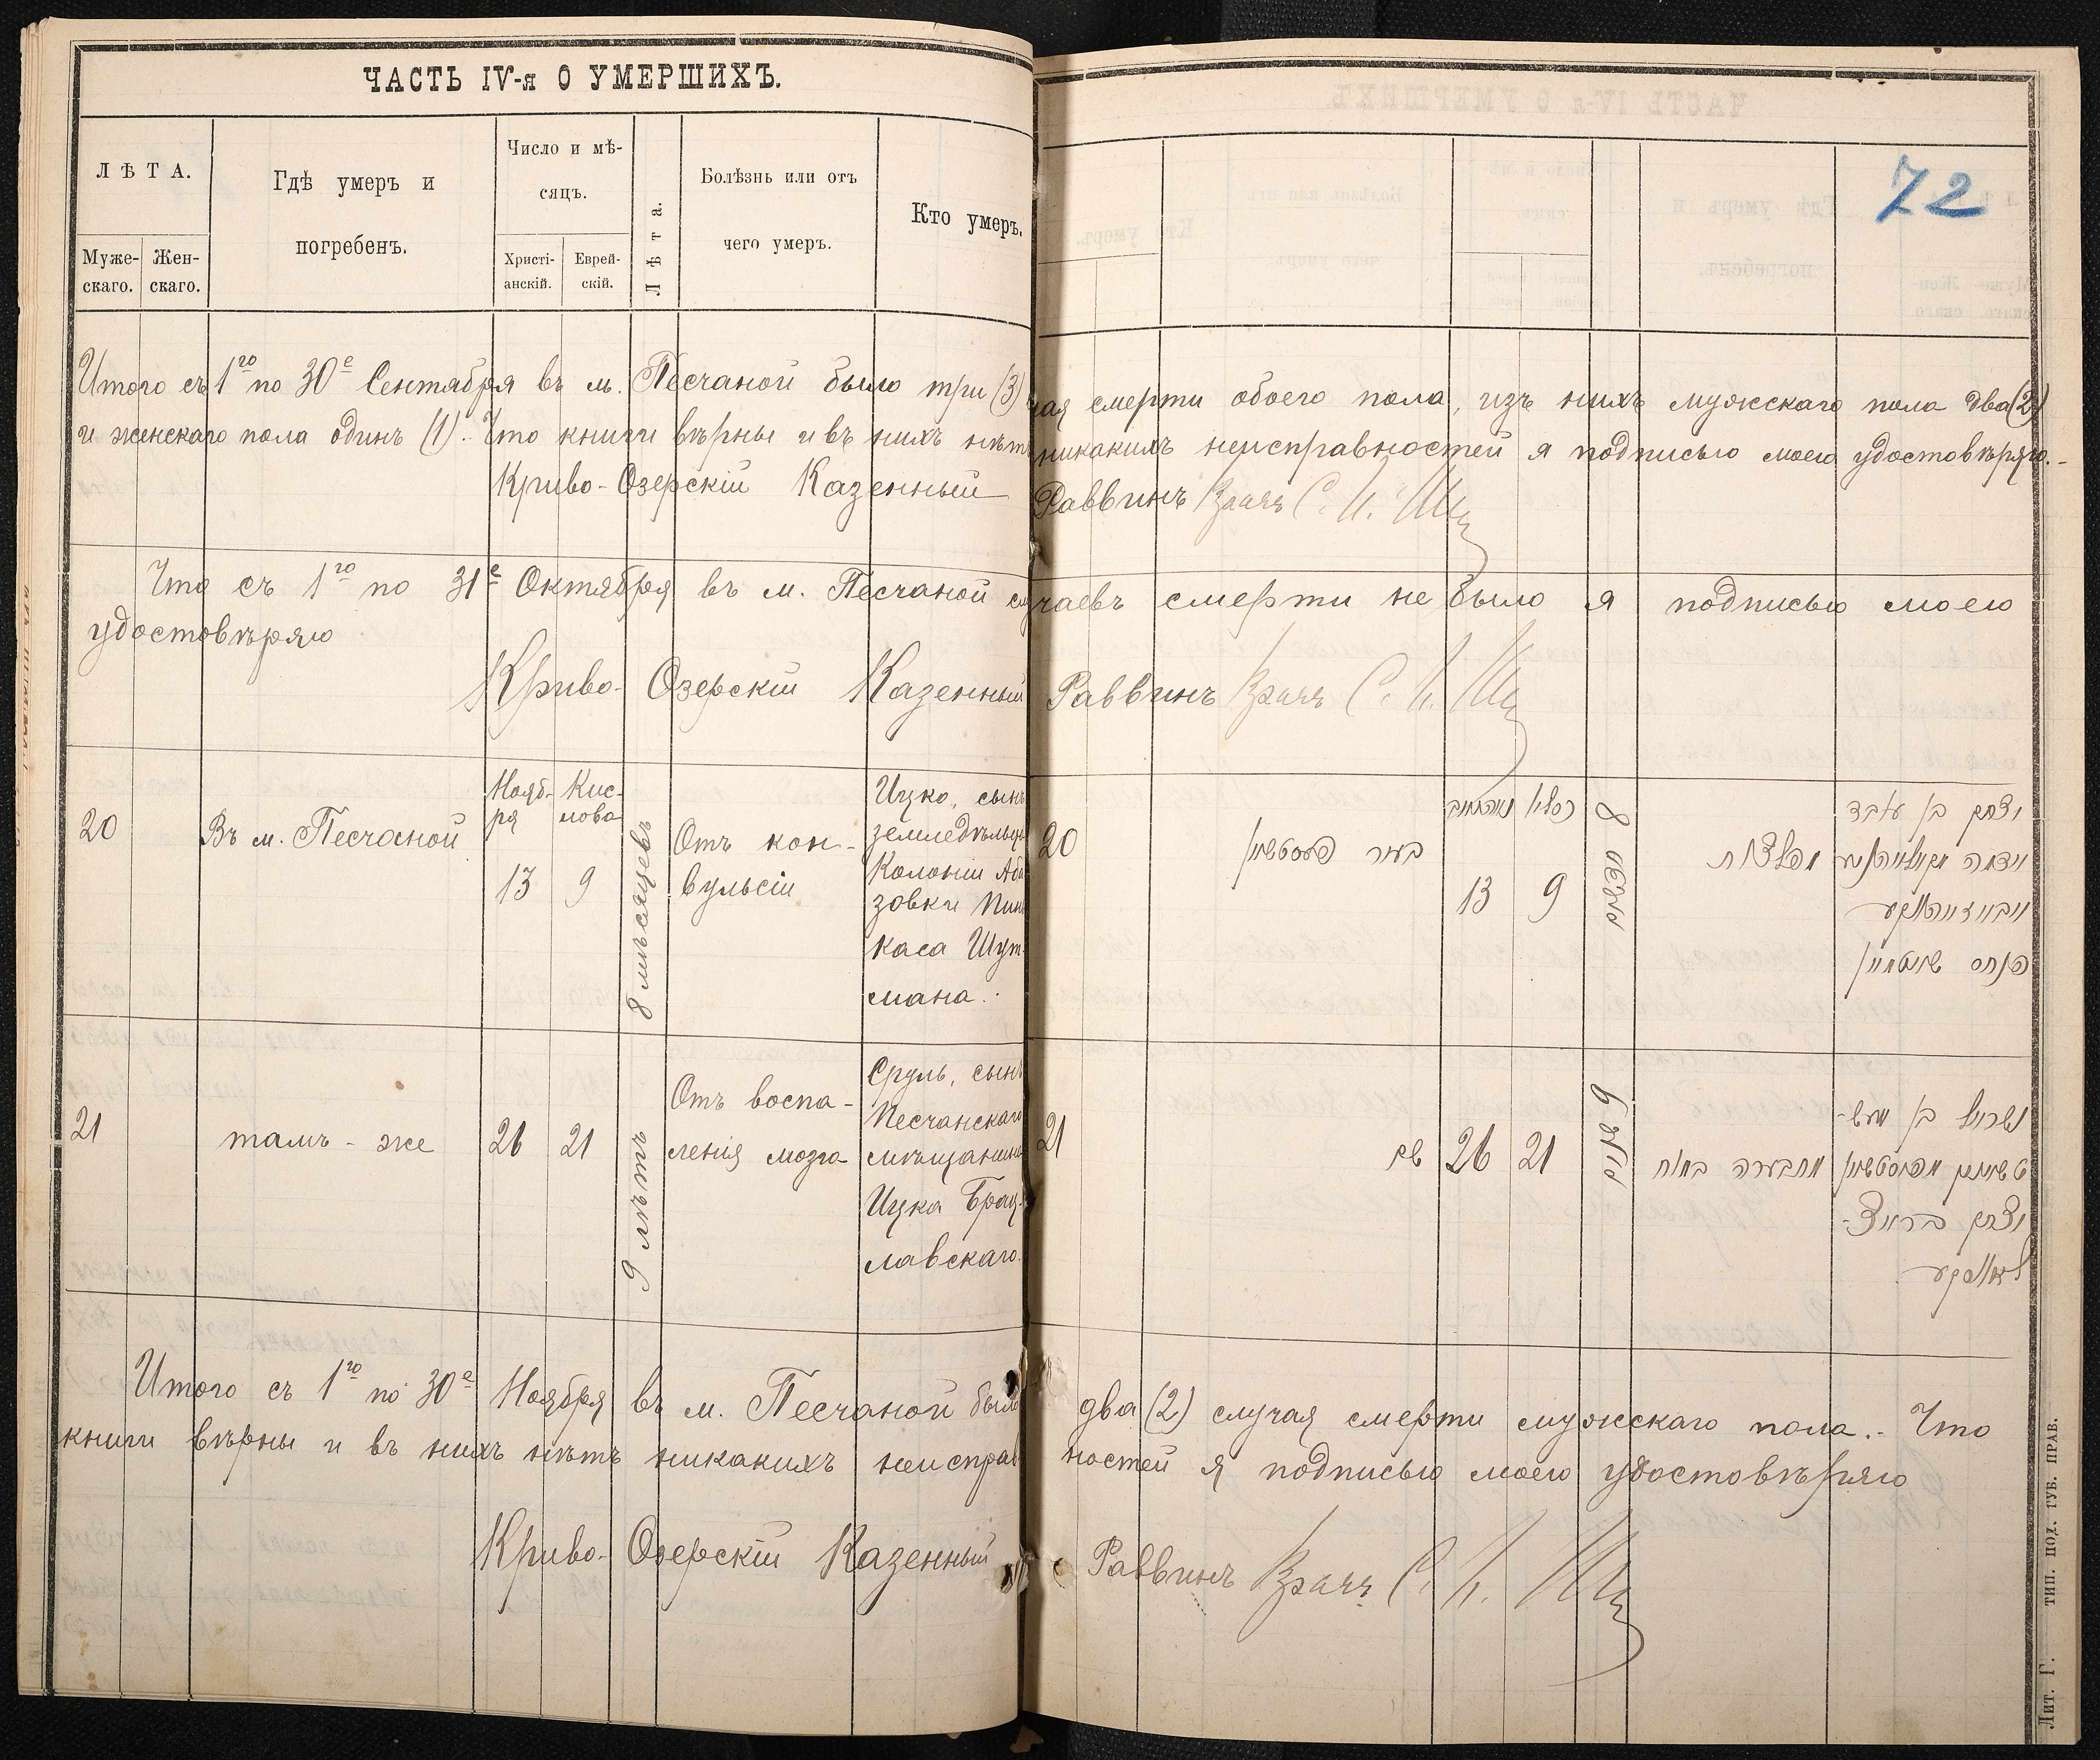 ЧАСТЬ IV-я О УМЕРШИХЪ.
ЛѢТА.
Муже-
скаго.
Жен-
скаго.
Гдѣ умеръ и
погребенъ.
Число и мѣ-
сяцъ.
Христі-
анскій.
Еврей-
скій.
Лѣта.
Болѣзнь или отъ
чего умеръ.
Кто умеръ.
72
Итого съ 1го по 30е Сентября въ м. Песчаной было три (3) чая смерти обоего пола, изъ нихъ мужскаго пола два (2)
и женскаго пола одинъ (1). Что книги вѣрны и въ нихъ нѣтъ никакихъ неисправностей я подписью моею удостовѣряю.-
Криво-Озерскій Казенный Раввинъ Врачъ С.
Что съ 1го по 31е Октября въ м. Песчаной случаевъ смерти не было я подписью моею
удостовѣряю
Криво-Озерскій Казенный Раввинъ Врачъ С.
20
Въ м. Песчаной
Нояб-
ря
13
Кис-
лова
9
8 мѣсяцевъ
Отъ кон-
вульсіи
Ицко, сынъ
земледѣльца
Колоніи Аба
зовки Пин
каса Шут-
мана.
20
בעיר
13
9
8
יצחק בן
פנחס שוטמאן
21
тамъ-же
26
21
9 лѣтъ
Отъ воспа-
ленія мозга
Сруль, сынъ
Песчанскаго
мѣщанина
Ицка Брац-
лавскаго.
21
שם
26
21
9
ישראל בן
יצחק בראצ-
לאווסקי
Итого съ 1го по 30е Ноября въ м. Песчаной было два (2) случая смерти мужскаго пола.- Что
книги вѣрны и въ нихъ нѣтъ никакихъ неисправностей я подписью моею удостовѣряю
Криво-Озерскій Казенный Раввинъ Врачъ С.
Лит. Г. ТИП. ПОД. ГУБ. ПРАВ.